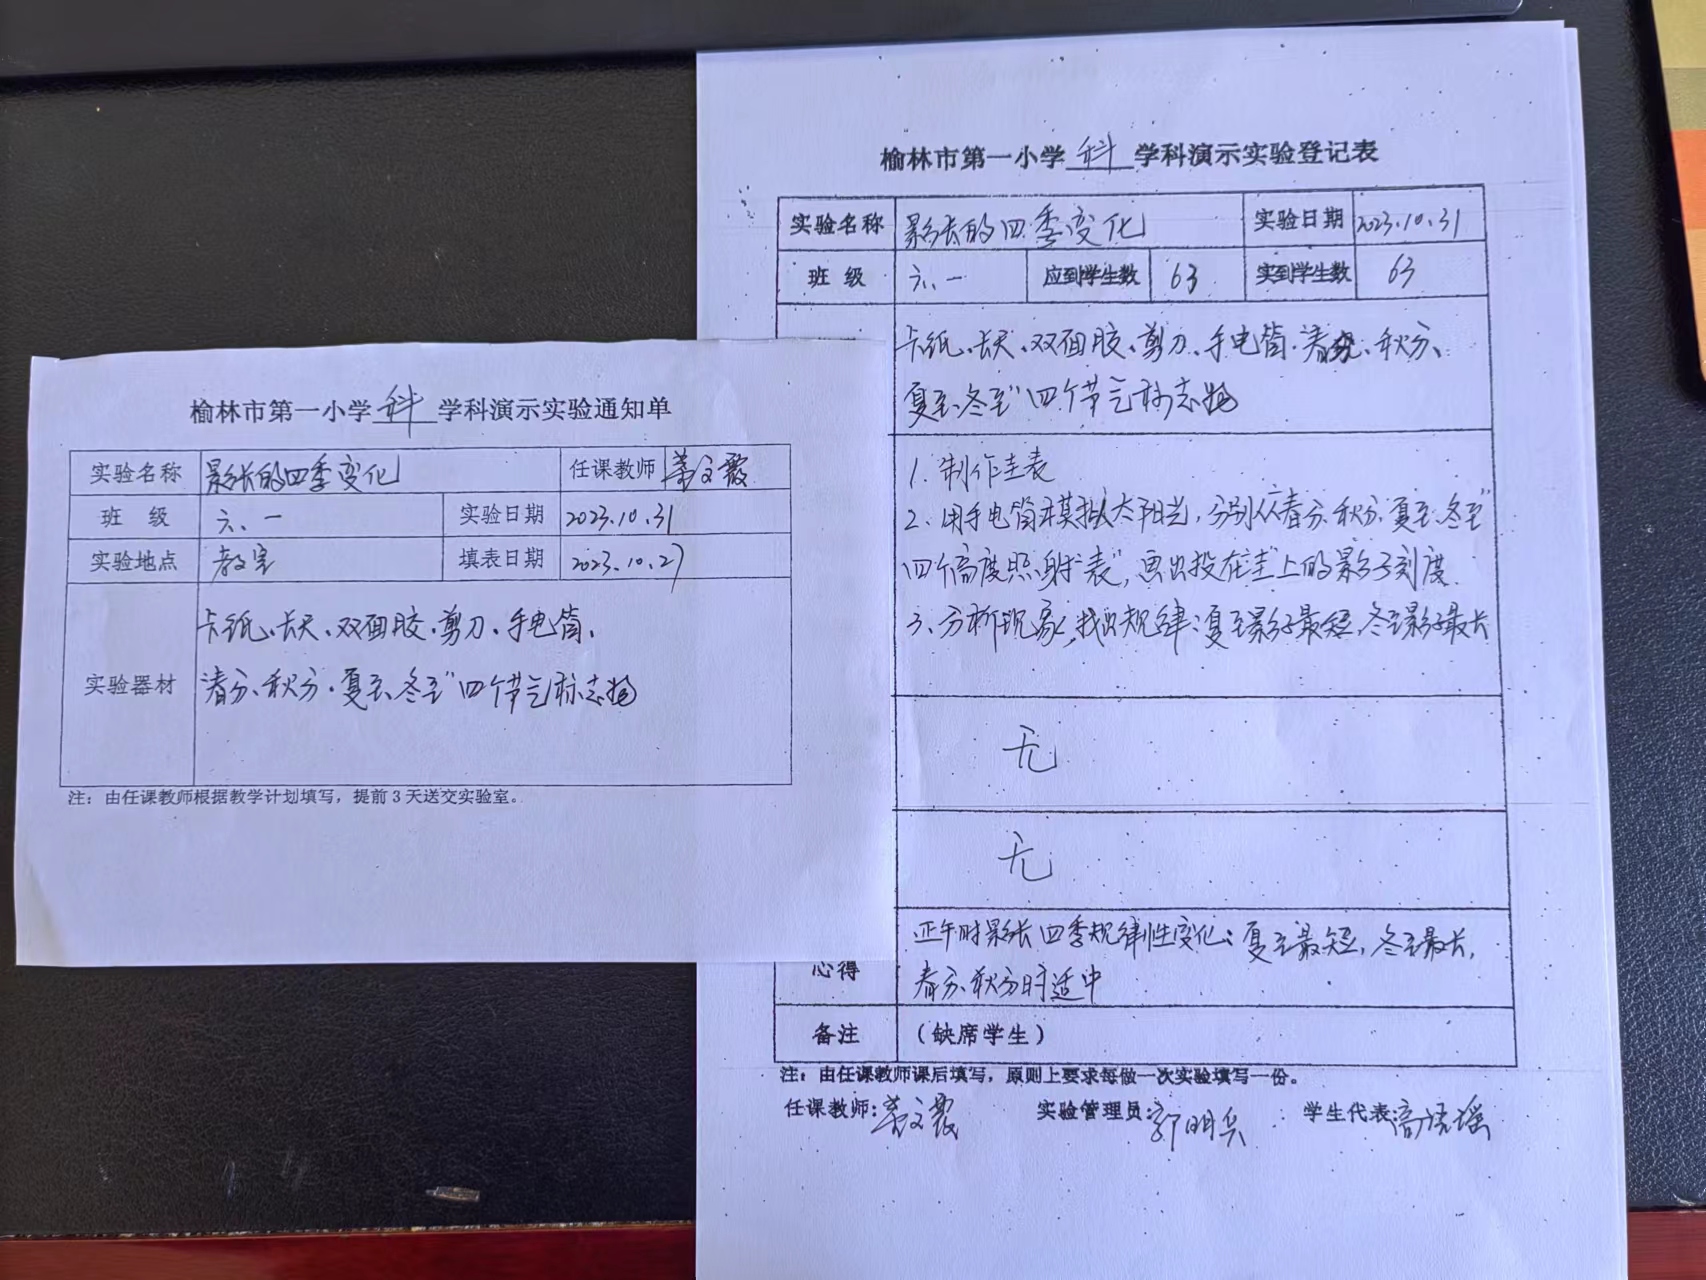 榆林市第一小学 科 学科演示实验通知单
实验名称 影长的四季变化 任课教师
班 级 六、一 实验日期 2023.10.31
实验地点 教室 填表日期 2023.10.27
卡纸、长尺、双面胶、剪刀、手电筒、
实验器材
"春分、秋分、夏至、冬至"四个节气标志物
注：由任课教师根据教学计划填写，提前3天送交实验室。
榆林市第一小学 科 学科演示实验登记表
实验名称 影长的四季变化 实验日期 2023.10.31
班 级 六、一 应到学生数 63 实到学生数 63
卡纸、长尺、双面胶、剪刀、手电筒、春分、秋分、
夏至、冬至"四个节气标志物
1. 制作圭表
2、用手电筒来模拟太阳光，分别从"春分、秋分、夏至、冬至"
四个高度照射"表"，画出投在"圭"上的影子刻度.
3、分析现象，找出规律：夏至影子最短，冬至影子最长
无
无
正午时影长四季规律性变化：夏至最短，冬至最长，
心得
春分、秋分时适中
备注 （缺席学生）
注：由任课教师课后填写，原则上要求每做一次实验填写一份。
任课教师： 实验管理员：郭明兵 学生代表：